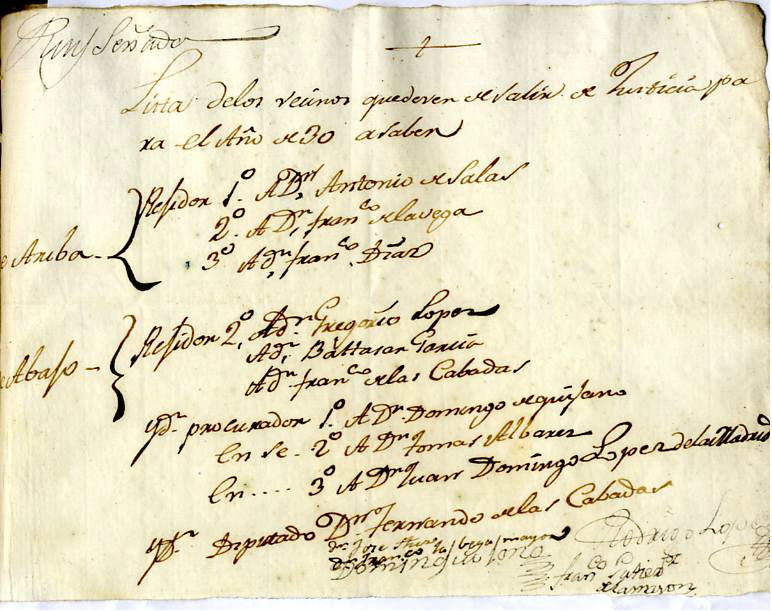 Lista delos vecinos quedeven de salir de Justicia pa
ra el Año de 30 asaber
de Arriba
Residor 1º A Dn Antonio de Salas
2º A Dn Franco delavega
3º A dn franco Diaz
de Abajo
Residor 2º, A dn Gregorio Lopez
A dn Baltasar Garcia
A dn franco delas Cabadas
Ydn procurador 1º A Dn Domingo de quijano
En se 2º A Dn tomas Albarez
En .... 3º A Dn Juan Domingo Lopez dela Madrid
Diputado Dn fernando delas Cabadas
dn Jose
Rodrigo Lopez
franco